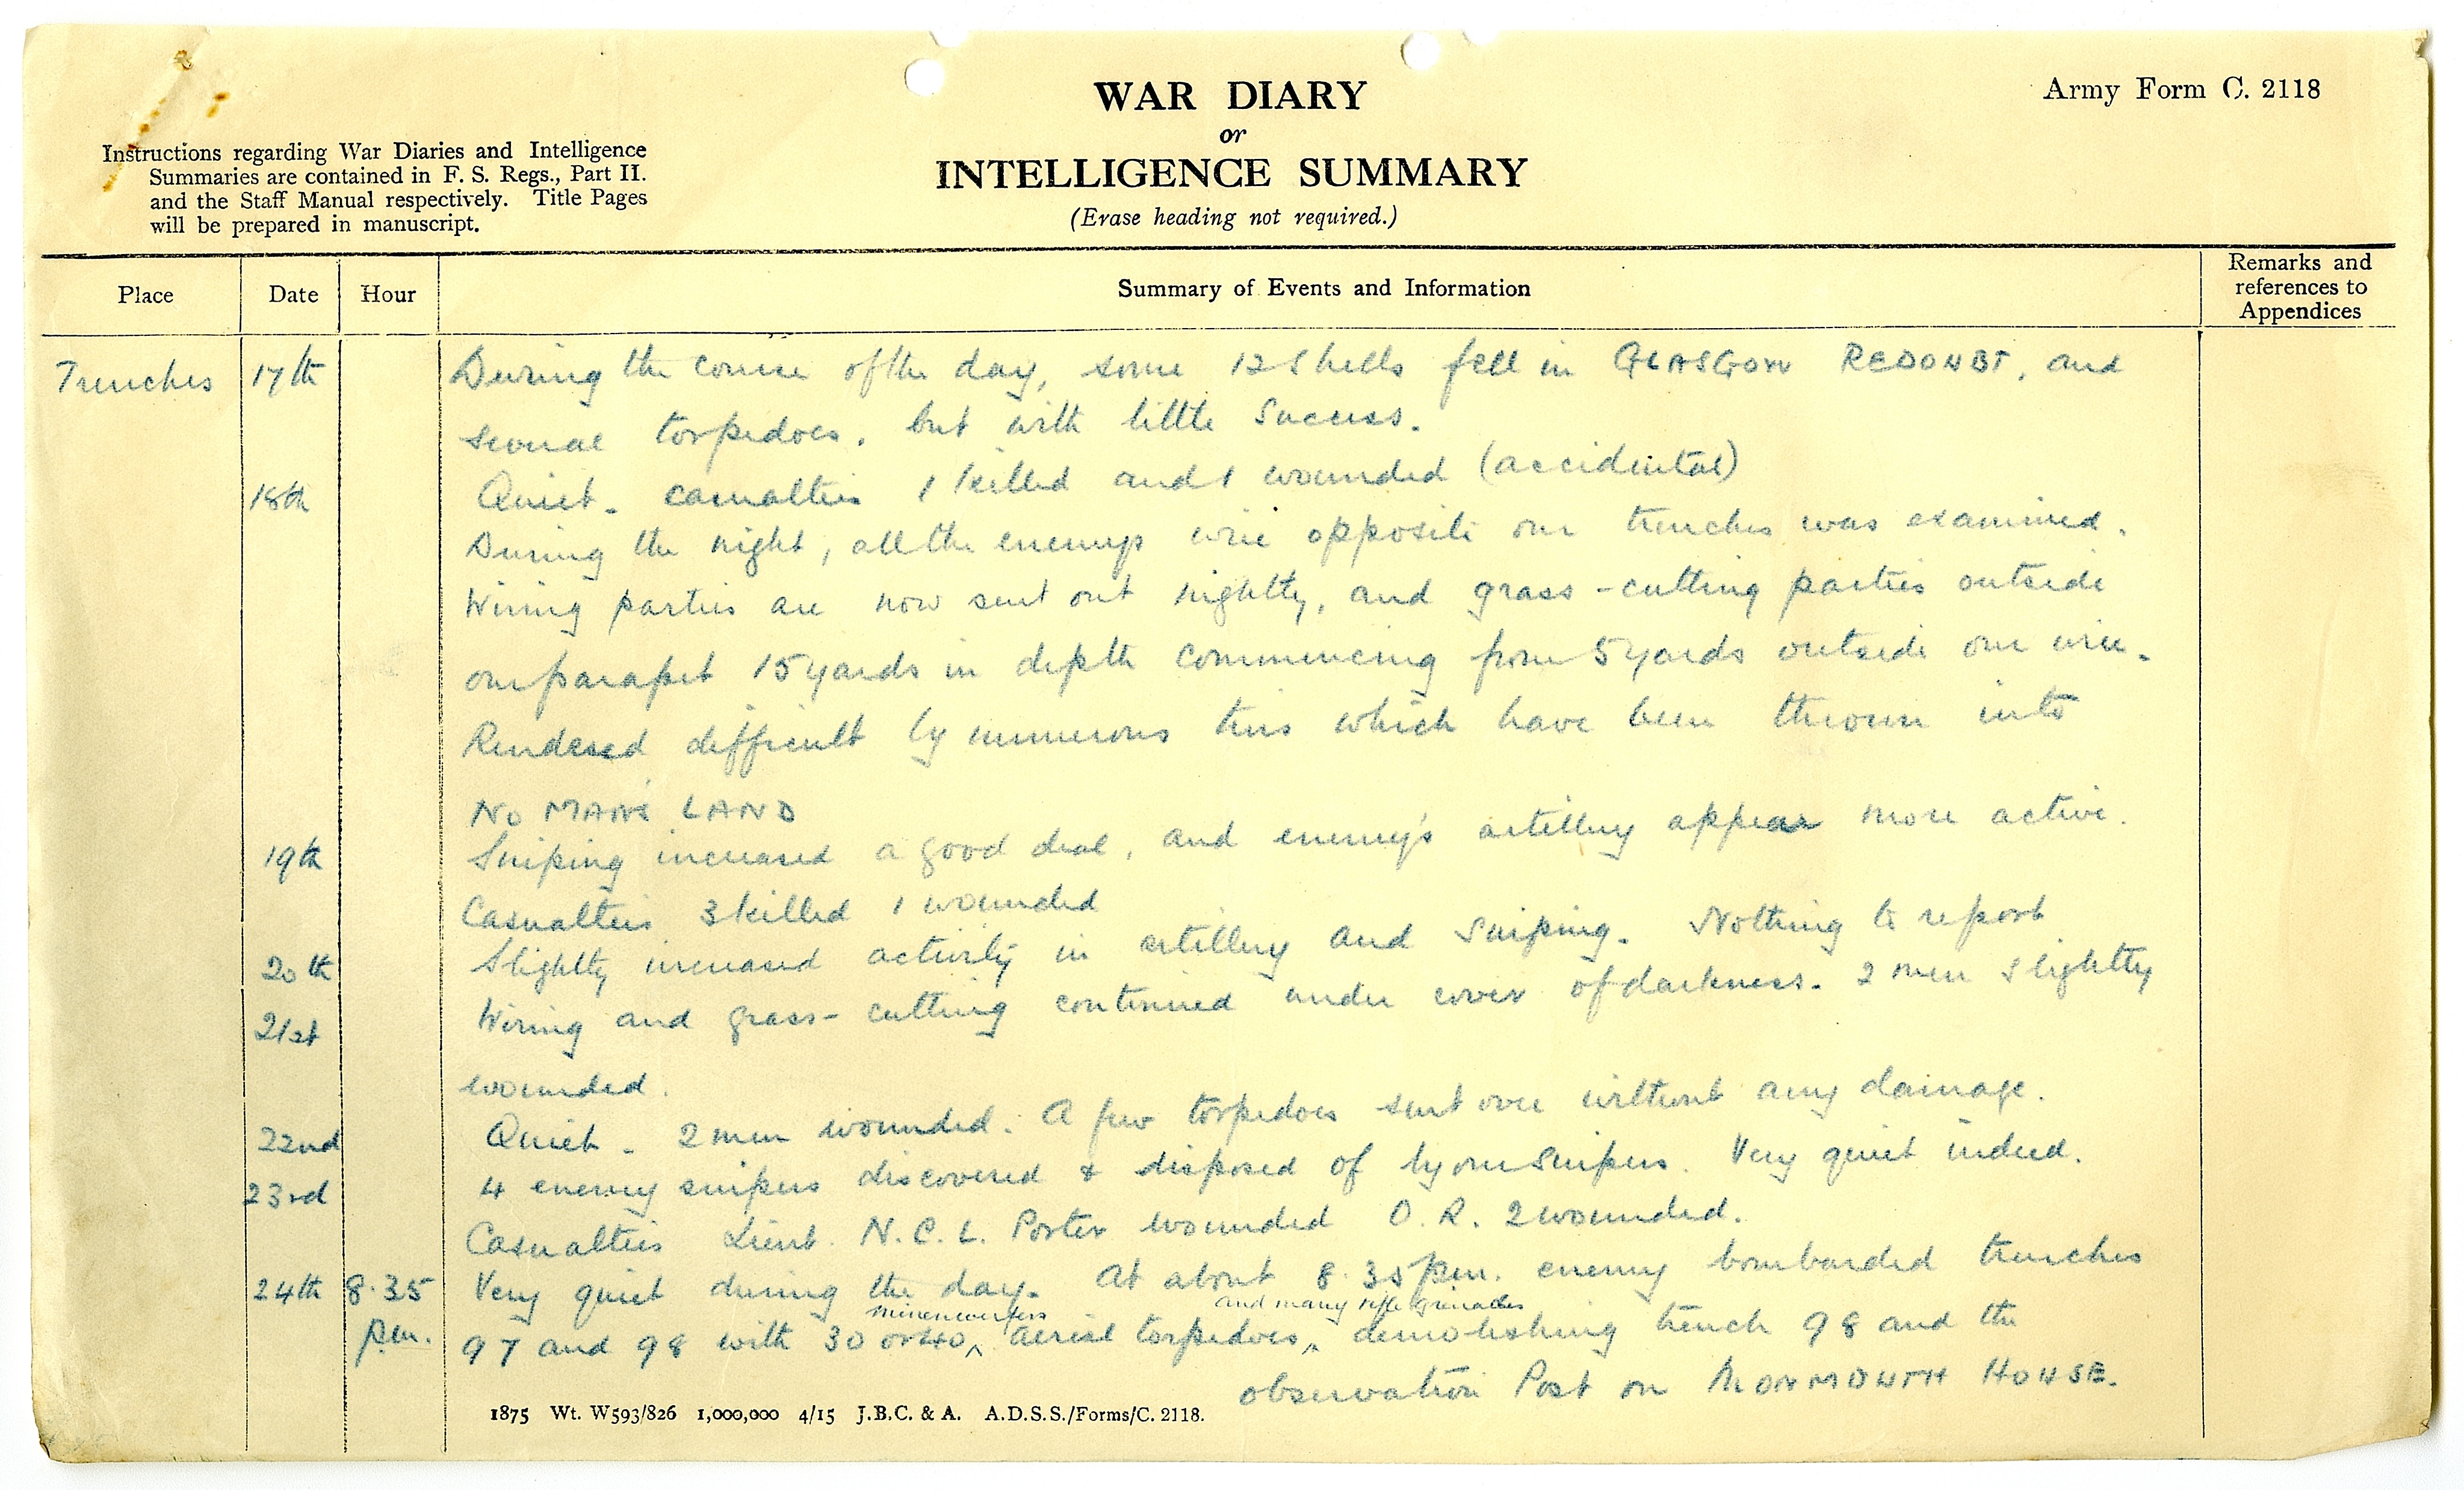 WAR DIARY
or
INTELLIGENCE SUMMARY
(Erase heading not required.)
Army Form C. 2118
Instructions regarding War Diaries and Intelligence
Summaries are contained in F. S. Regs., Part II.
and the Staff Manual respectively. Title Pages
will be prepared in manuscript.
Place Date Hour Summary of Events and Information Remarks and
references to
Appendices
Trenches 17th During the course of the day, some 12 shells fell in GLASGOW REDOUBT, and
several torpedoes, but with little success.
18th Quiet. casualties 1 killed and 1 wounded (accidental)
During the night, all the enemys wire opposite our trenches was examined.
Wiring parties are now sent out nightly, and grass-cutting parties outside
our parapet 15 yards in depth commencing from 5 yards outside our wire.
Rendered difficult by numerous tins which have been thrown into
NO MANS LAND
19th Sniping increased a good deal, and enemy's artillery appear more active.
Casualties 3 killed 1 wounded
20th Slightly increased activity in artillery and sniping. Nothing to report
21st Wiring and grass-cutting continued under cover of darkness. 2 men slightly
wounded.
22nd Quiet. 2 men wounded. A few torpedoes sent over without any damage.
23rd 4 enemy snipers discovered & disposed of by our snipers. Very quiet indeed.
Casualties Lieut. N. C. L. Porter wounded O. R. 2 wounded.
24th 8.35 Very quiet during the day. At about 8.35 pm. enemy bombarded trenches
minenwerfers and many rifle grenades
pm. 97 and 98 with 30 or 40 ^ aerial torpedoes ^ demolishing trench 98 and the
observation Post on MONMOUTH HOUSE.
1875 Wt. W593/826 1,000,000 4/15 J.B.C. & A. A.D.S.S./Forms/C. 2118.